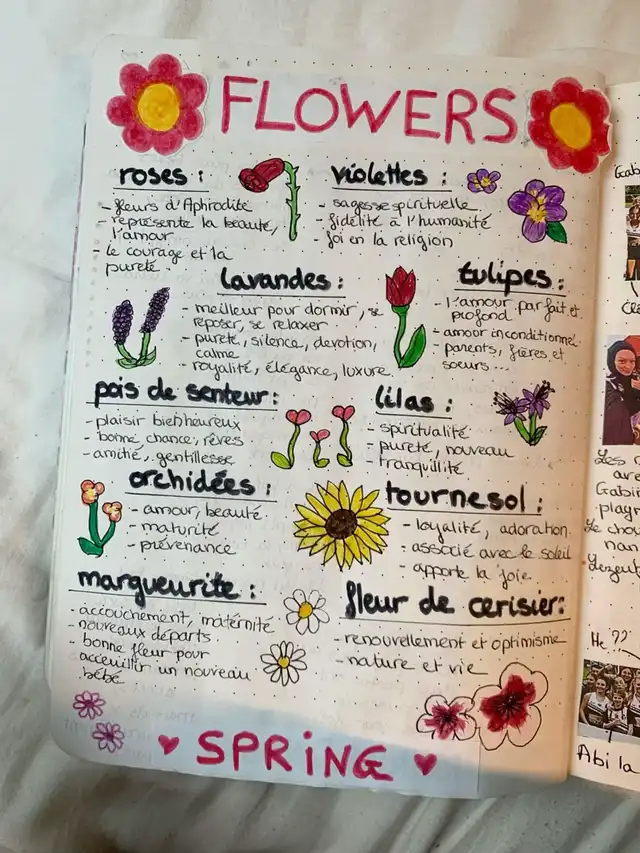 FLOWERS
roses :
- fleurs d'Aphrodite
- représente la beauté,
l'amour
- le courage et la
pureté.
violettes :
- sagesse spirituelle
- fidélité à l'humanité
- foi en la religion
lavandes :
- meilleur pour dormir, se
reposer, se relaxer
- pureté, silence, devotion,
calme
- royalité, élégance, luxure.
tulipes :
- l'amour parfait et
profond
- amour inconditionnel
- parents, frères et
soeurs...
pois de senteur :
- plaisir bienheureux
- bonne chance, rêves
- amitié, gentillesse
lilas :
- spiritualité
- pureté, nouveau
- tranquilité
orchidées :
- amour, beauté
- maturité
- prévenance
tournesol :
- loyalité, adoration
- associé avec le soleil
- apporte la joie
margueurite :
- accouchement, maternité
- nouveaux départs
- bonne fleur pour
acceuillir un nouveau
bébé
fleur de cerisier:
- renouvellement et optimisme
- nature et vie
SPRING
Gabi
Les
are
Gabi
playn
Le
nan
He ??
Abi la